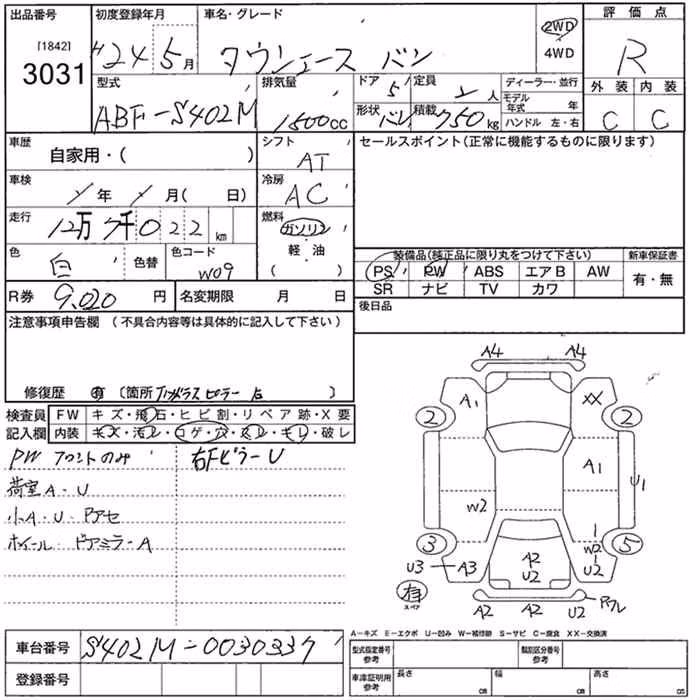 出品番号 初度登録年月 車名・グレード 評価点
[1842]
3031
H24年5月 タウンエース バン 2WD
4WD
R
型式 排気量 ドア 5 定員 人 ディーラー・並行 外装 内装
ABF-S402M 1500cc 形状 バン 積載 750kg モデル年式 年
ハンドル 左・右
C C
車歴 シフト セールスポイント(正常に機能するものに限ります)
自家用・( ) AT
車検 冷房
年 月( 日) AC
走行 燃料
12万7千022km ガソリン
軽・油
( )
色 色替 色コード
白 W09
装備品(純正品に限り丸をつけて下さい) 新車保証書
PS PW ABS エアB AW 有・無
SR ナビ TV カワ
R券 9,020円 名変期限 月 日 後日品
注意事項申告欄(不具合内容等は具体的に記入して下さい)
修復歴 有 〔箇所 ピラー 〕
検査員 FW キズ・飛石・ヒビ割・リペア跡・X要
記入欄 内装 キズ・汚レ・コゲ・穴・スレ・キレ・破レ
PW フロントのみ 右Fピラー U
荷室 A・U
小A・U・Pアセ
ホイール・ドアミラーA
A4 A4
A1 XX
2 2
A1
U1
W2
W2
3 5
U3 A3 A2 U2 U2
有 スペア
A2 A2 U2 Rフル
A-キズ E-エクボ U-凹み W-補修跡 S-サビ C-腐食 XX-交換済
車台番号 S402M-0030337 型式指定番号 参考 類別区分番号 参考
登録番号 車庫証明用 参考 長さ cm 幅 cm 高さ cm